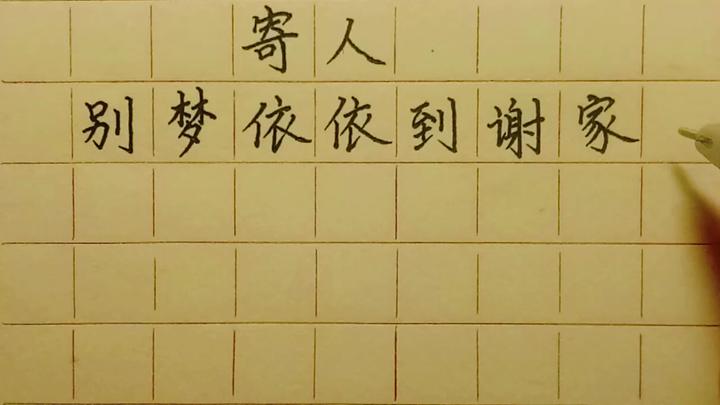 寄人
别梦依依到谢家